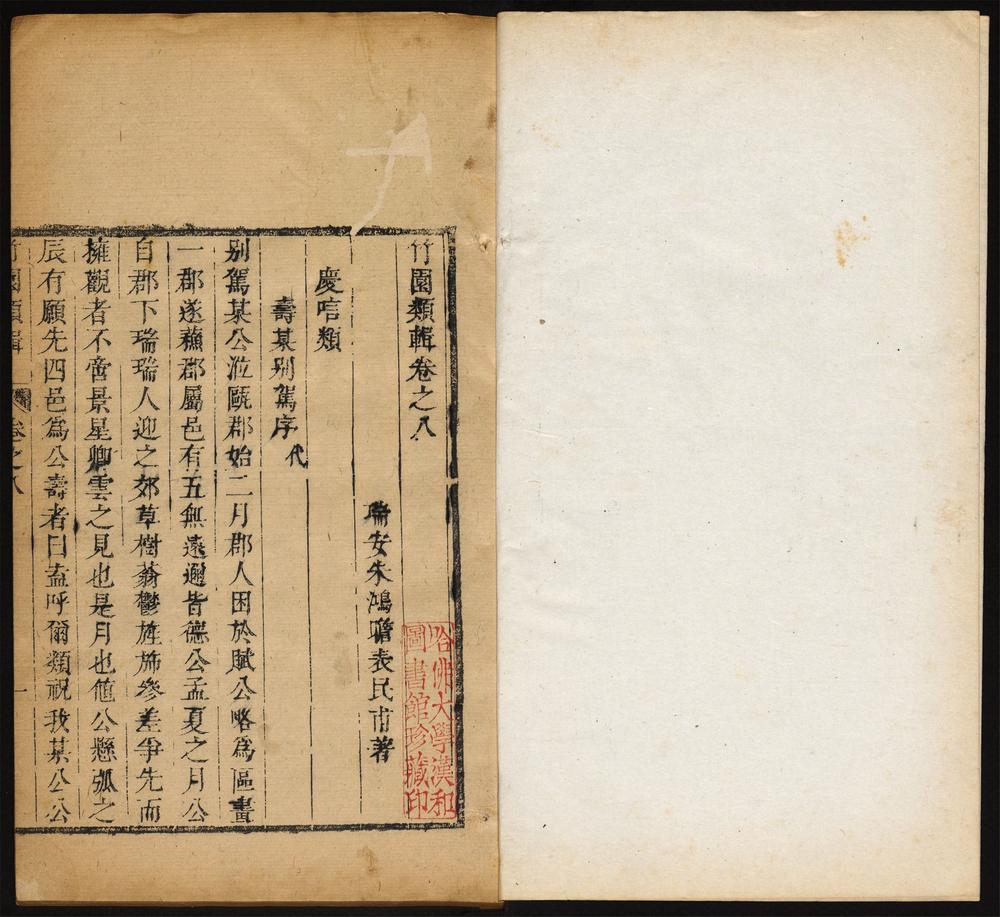 竹園類輯卷之八
瑞安朱鴻瞻表民甫著
慶唁類
壽某别駕序代
别駕某公涖甌郡始二月郡人困於賦公略為區畫
一郡遂蘇郡屬邑有五無遠邇皆德公孟夏之月公
自郡下瑞瑞人迎之郊草樹蓊鬱旌斾參差爭先而
擁觀者不啻景星卿雲之見也是月也値公懸弧之
辰有願先四邑爲公壽者曰盍呼爾類祝我某公公
竹園類輯 卷之八 一
哈佛大學漢和
圖書館珍藏印